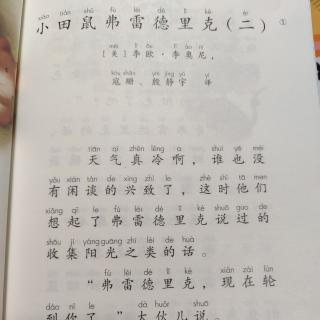 xiǎo tián shǔ fú léi dé lǐ kè èr
小田鼠弗雷德里克(二) ①
měi lǐ ōu lǐ ào ní
[美]李欧·李奥尼,
kòu shān yīn jìng yǔ yì
寇珊、殷静宇 译
tiān qì zhēn lěng a shuí yě méi
天气真冷啊,谁也没
yǒu xián tán de xìng zhì le zhè shí tā men
有闲谈的兴致了,这时他们
xiǎng qǐ le fú léi dé lǐ kè shuō guò de
想起了弗雷德里克说过的
shōu jí yáng guāng zhī lèi de huà
收集阳光之类的话。
fú léi dé lǐ kè xiàn zài lún
“弗雷德里克,现在轮
dào nǐ le dà huǒr shuō
到你了,”大伙儿说。